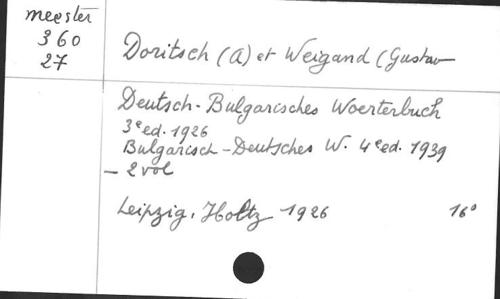 meester
360
27
Doritsch (A) et Weigand (Gustav
Deutsch-Bulgarisches Woerterbuch
3e ed. 1926
Bulgarisch-Deutsches W. 4e ed. 1939
- 2 vol
Leipzig, Holtz 1926 16°